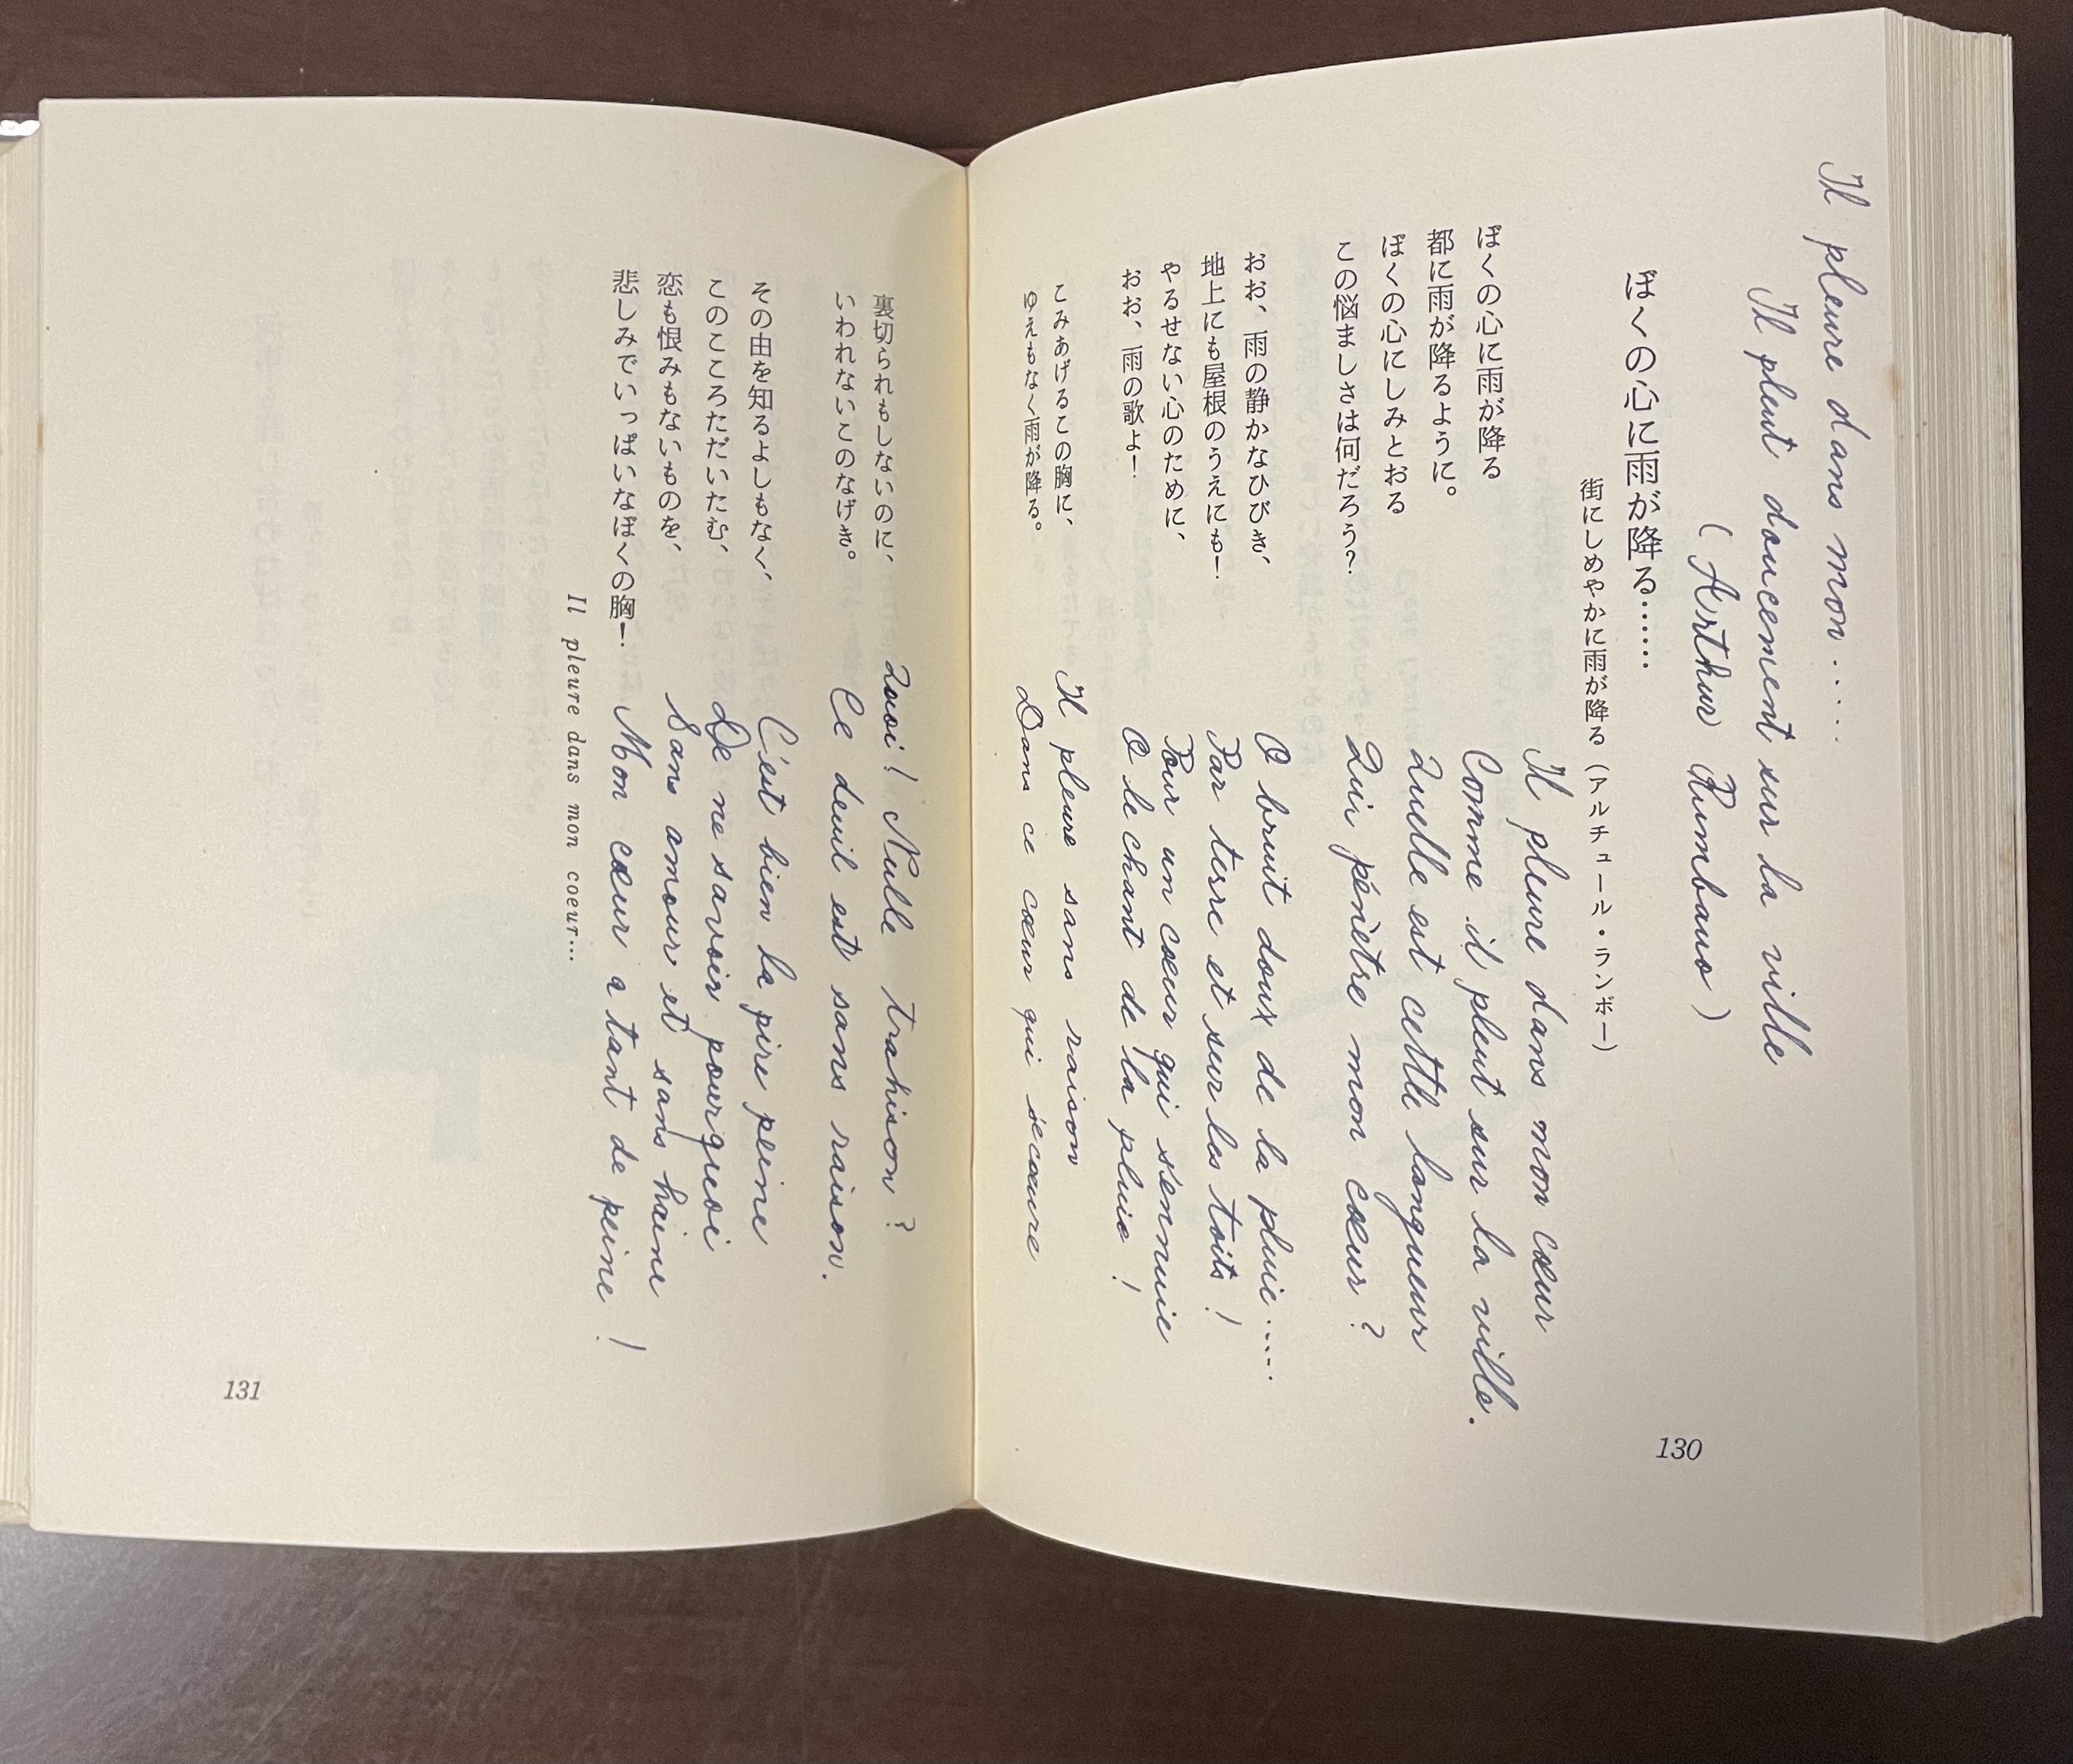 Il pleure dans mon.....
Il pleut doucement sur la ville
(Arthur Rimbaud)
ぼくの心に雨が降る……
街にしめやかに雨が降る（アルチュール・ランボー）
ぼくの心に雨が降る
都に雨が降るように。
ぼくの心にしみとおる
この悩ましさは何だろう？
Il pleure dans mon cœur
Comme il pleut sur la ville.
Quelle est cette langueur
Qui pénètre mon cœur ?
おお、雨の静かなひびき、
地上にも屋根のうえにも！
やるせない心のために、
おお、雨の歌よ！
O bruit doux de la pluie.....
Par terre et sur les toits !
Pour un cœur qui s'ennuie
O le chant de la pluie !
こみあげるこの胸に、
ゆえもなく雨が降る。
Il pleure sans raison
Dans ce cœur qui s'écœure
130
裏切られもしないのに、
いわれないこのなげき。
Quoi ! Nulle trahison ?
Ce deuil est sans raison.
その由を知るよしもなく、
このこころただいたむ、
恋も恨みもないものを、
悲しみでいっぱいなぼくの胸！
C'est bien la pire peine
De ne savoir pourquoi
Sans amour et sans haine
Mon cœur a tant de peine !
Il pleure dans mon coeur…
131